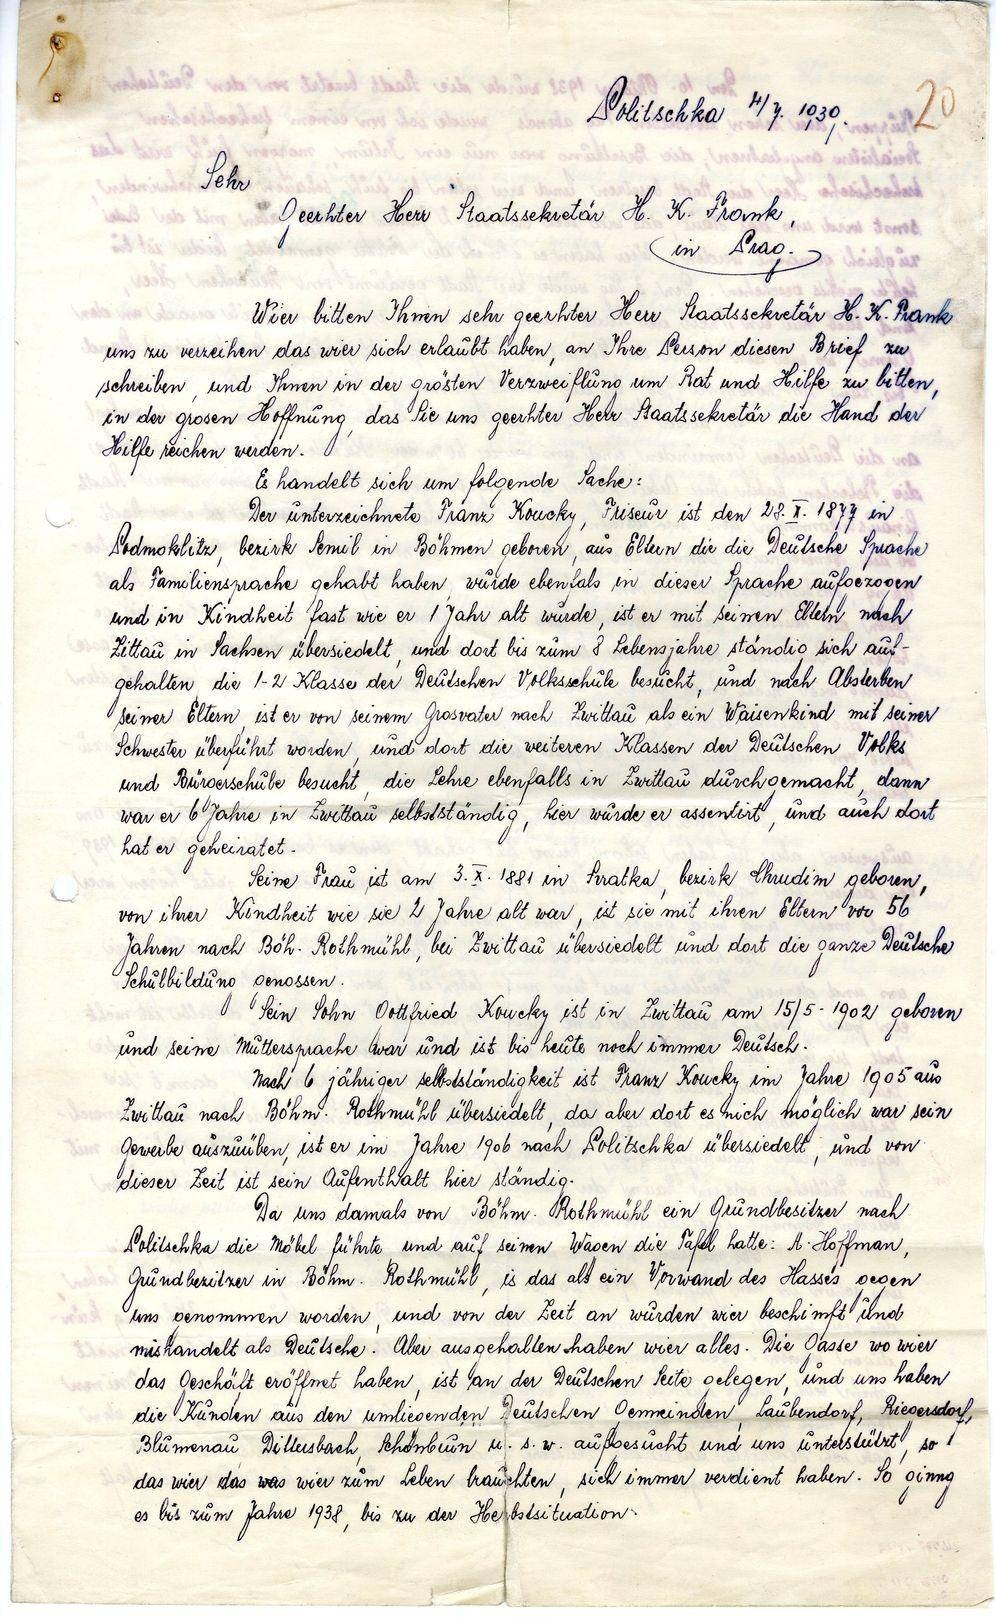 Politschka 4/7. 1939.
20
Sehr
Geerhter Herr Staatssekretär H. K. Frank,
in Prag.
Wier bitten Ihnen sehr geerhter Herr Staatssekretär H. K. Frank
uns zu verzeihen das wier sich erlaubt haben, an Ihre Person diesen Brief zu
schreiben, und Ihnen in der grösten Verzweiflung um Rat und Hilfe zu bitten,
in der grosen Hoffnung, das Sie uns geerhter Herr Staatssekretär die Hand der
Hilfe reichen werden.
Es handelt sich um folgende Sache:
Der unterzeichnete Franz Koucky, Friseur ist den 28. X. 1877 in
Podmoklitz, bezirk Semil in Böhmen geboren, aus Eltern die die Deutsche Sprache
als Familiensprache gehabt haben, wurde ebenfals in dieser Sprache aufgezogen
und in Kindheit fast wie er 1 Jahr alt wurde, ist er mit seinen Eltern nach
Zittau in Sachsen übersiedelt, und dort bis zum 8 Lebensjahre ständig sich auf-
gehalten, die 1-2 Klasse der Deutschen Volksschule besucht, und nach Absterben
seiner Eltern, ist er von seinem Grosvater nach Zwittau als ein Waisenkind mit seiner
Schwester überführt worden, und dort die weiteren Klassen der Deutschen Volks
und Bürgerschule besucht, die Lehre ebenfalls in Zwittau durchgemacht, dann
war er 6 Jahre in Zwittau selbstständig, hier wurde er assentirt, und auch dort
hat er geheiratet.
Seine Frau ist am 3. X. 1881 in Svratka, bezirk Chrudim geboren,
von ihrer Kindheit wie sie 2 Jahre alt war, ist sie mit ihren Eltern vor 56
Jahren nach Böh. Rothmühl, bei Zwittau übersiedelt und dort die ganze Deutsche
Schulbildung genossen.
Sein Sohn Gottfried Koucky ist in Zwittau am 15/5. 1902 geboren
und seine Muttersprache war und ist bis heute noch immer Deutsch.
Nach 6 jähriger selbstständigkeit ist Franz Koucky im Jahre 1905 aus
Zwittau nach Böhm. Rothmühl übersiedelt, da aber dort es nich möglich war sein
Gewerbe auszuüben, ist er im Jahre 1906 nach Politschka übersiedelt, und von
dieser Zeit ist sein Aufenthalt hier ständig.
Da uns damals von Böhm. Rothmühl ein Grundbesitzer nach
Politschka die Möbel führte und auf seinen Wagen die Tafel hatte: A. Hoffman,
Grundbezitzer in Böhm. Rothmühl, is das als ein Vorwand des Hasses gegen
uns genommen worden, und von der Zeit an wurden wier beschimft und
mishandelt als Deutsche. Aber ausgehalten haben wier alles. Die Gasse wo wier
das Geschäft eröffnet haben, ist an der Deutschen Seite gelegen, und uns haben
die Kunden aus den umliegenden Deutschen Gemeinden, Laubendorf, Riegersdorf,
Blumenau, Dittersbach, Schönbrun u. s. w. aufgesucht und uns unterstützt, so
das wier das was wier zum Leben brauchten, sich immer verdient haben. So ginng
es bis zum Jahre 1938, bis zu der Herbstsituation.